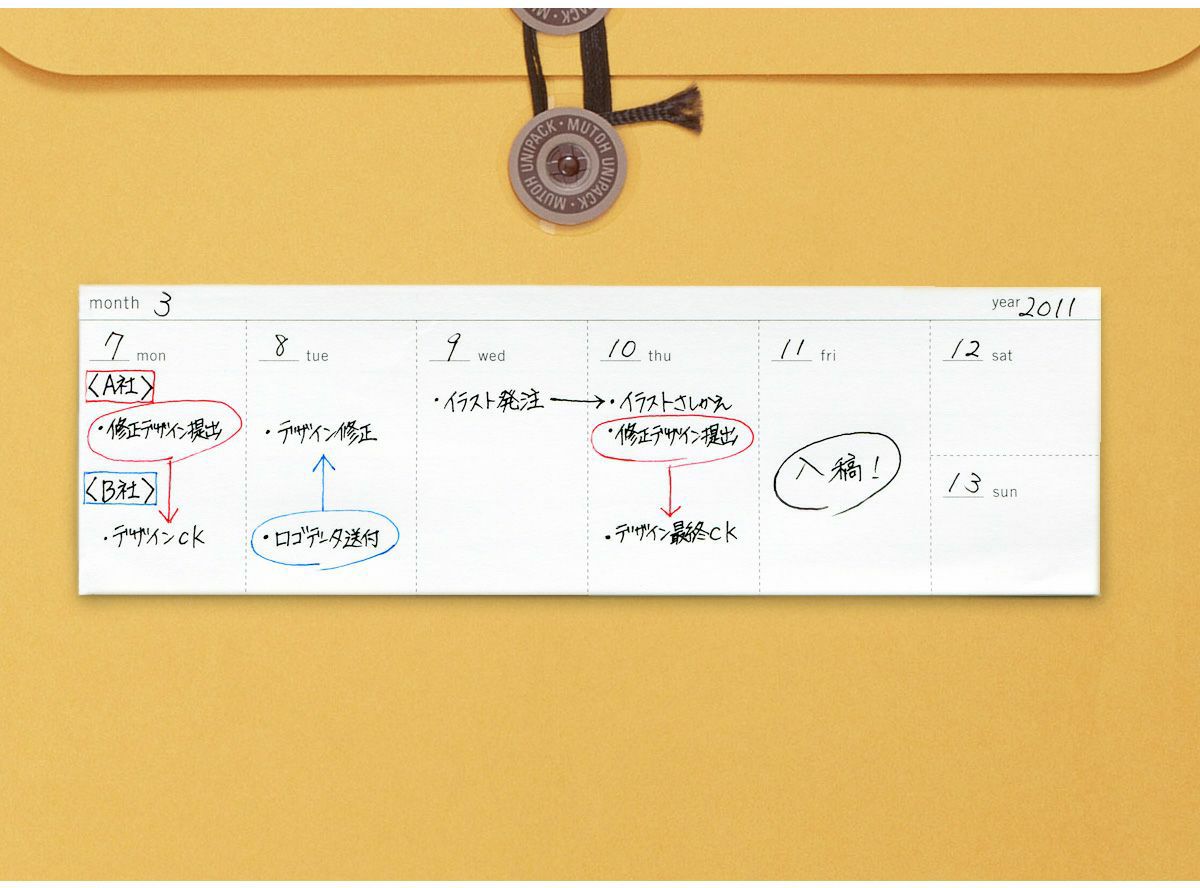 MUTOH UNIPACK・MUTOH UNIPACK・
month 3
year 2011
7 mon
〈A社〉
・修正デザイン提出
〈B社〉
・デザインcK
8 tue
・デザイン修正
・ロゴデータ送付
9 wed
・イラスト発注
10 thu
・イラストさしかえ
・修正デザイン提出
・デザイン最終cK
11 fri
入稿!
12 sat
13 sun